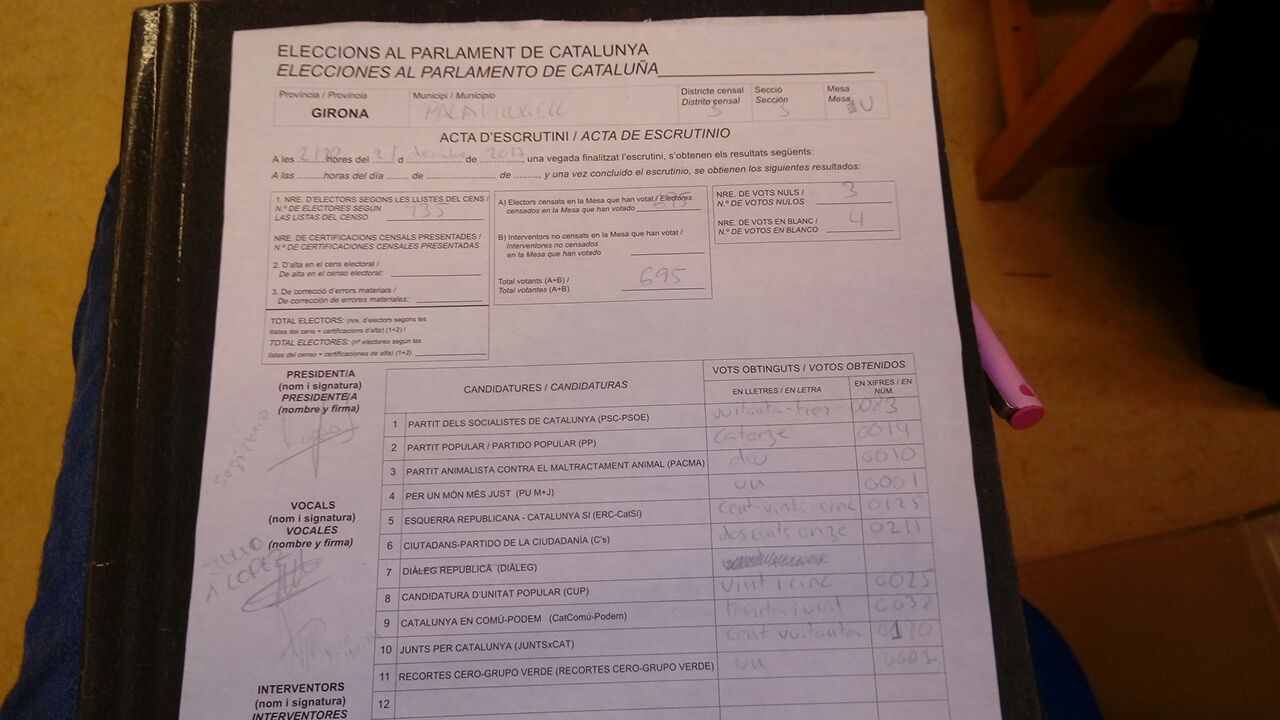 ELECCIONS AL PARLAMENT DE CATALUNYA
ELECCIONES AL PARLAMENTO DE CATALUÑA
Província / Provincia
GIRONA
Municipi / Municipio
PALAFRUGELL
Districte censal
Distrito censal
3
Secció
Sección
3
Mesa
Mesa
U
ACTA D'ESCRUTINI / ACTA DE ESCRUTINIO
A les hores del 21 d desembre de 2017 una vegada finalitzat l'escrutini, s'obtenen els resultats següents:
A las ..........horas del día ........ de .......................... de ........., y una vez concluido el escrutinio, se obtienen los siguientes resultados:
1. NRE. D'ELECTORS SEGONS LES LLISTES DEL CENS /
N.º DE ELECTORES SEGÚN
LAS LISTAS DEL CENSO 935
NRE. DE CERTIFICACIONS CENSALS PRESENTADES /
N.º DE CERTIFICACIONES CENSALES PRESENTADAS
2. D'alta en el cens electoral /
De alta en el censo electoral:
3. De correcció d'errors materials /
De corrección de errores materiales:
TOTAL ELECTORS: (nre. d'electors segons les
llistes del cens + certificacions d'alta) (1+2) /
TOTAL ELECTORES: (nº electores según las
listas del censo + certificaciones de alta) (1+2)
A) Electors censats en la Mesa que han votat / Electores
censados en la Mesa que han votado 695
B) Interventors no censats en la Mesa que han votat /
Interventores no censados
en la Mesa que han votado
Total votants (A+B) /
Total votantes (A+B) 695
NRE. DE VOTS NULS /
N.º DE VOTOS NULOS 3
NRE. DE VOTS EN BLANC /
N.º DE VOTOS EN BLANCO 4
PRESIDENT/A
(nom i signatura)
PRESIDENTE/A
(nombre y firma)
VOCALS
(nom i signatura)
VOCALES
(nombre y firma)
JULIO
A LOPEZ
INTERVENTORS
(nom i signatura)
INTERVENTORES
CANDIDATURES / CANDIDATURAS
VOTS OBTINGUTS / VOTOS OBTENIDOS
EN LLETRES / EN LETRA
EN XIFRES / EN NÚM.
1 PARTIT DELS SOCIALISTES DE CATALUNYA (PSC-PSOE) vuitanta-tres 0083
2 PARTIT POPULAR / PARTIDO POPULAR (PP) catorze 0014
3 PARTIT ANIMALISTA CONTRA EL MALTRACTAMENT ANIMAL (PACMA) deu 0010
4 PER UN MÓN MÉS JUST (PU M+J) un 0001
5 ESQUERRA REPUBLICANA - CATALUNYA SI (ERC-CatSí) cent-vint-i-cinc 0125
6 CIUTADANS-PARTIDO DE LA CIUDADANÍA (C's) doscents onze 0211
7 DIÀLEG REPUBLICÀ (DIÀLEG)
8 CANDIDATURA D'UNITAT POPULAR (CUP) vint i cinc 0025
9 CATALUNYA EN COMÚ-PODEM (CatComú-Podem) trenta i vuit 0038
10 JUNTS PER CATALUNYA (JUNTSxCAT) cent vuitanta 0180
11 RECORTES CERO-GRUPO VERDE (RECORTES CERO-GRUPO VERDE) un 0001
12